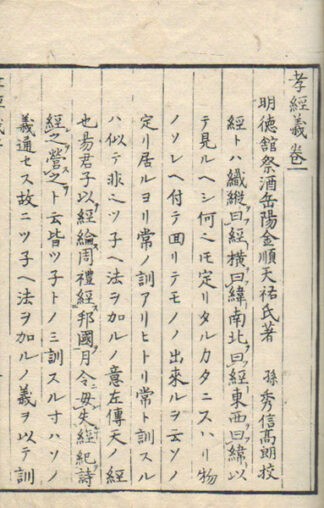 孝經義卷一
明德館祭酒岳陽金順天祐氏著　孫秀信高朗挍
經トハ織縱曰經橫曰緯南北曰經東西曰緯以
テ見ルヘシ何ニモ定リタルカタニスハリ物
ノソレヘ付テ回リテモノノ出來ルヲ云ソノ
定リ居ルヨリ常ノ訓アリヒトリ常ト訓スル
ハ似テ非之ツ子ヘ法ヲ加ルノ意左傳天ノ經
也昜君子以經綸周禮經邦國月令毋失經紀詩
經之營之ト云皆ツ子トノミ訓スルオハソノ
義通セス故ニツ子ヘ法ヲ加ルノ義ヲ以テ訓